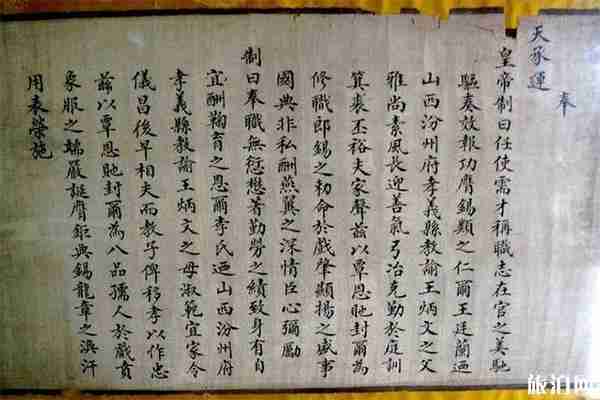 奉
天承運
皇帝制曰任使需才稱職志在官之美馳
驅奏效報功膺錫類之仁爾王廷蘭迺
山西汾州府孝義縣教諭王炳文之父
雅尚素風長迎善氣弓冶克勤於庭訓
箕裘丕裕夫家聲茲以覃恩貤封爾為
修職郎錫之勅命於戲肇顯揚之盛事
國典非私酬燕翼之深情臣心彌勵
制曰奉職無愆懋著勤勞之績致身有自
宜酬鞠育之恩爾李氏迺山西汾州府
孝義縣教諭王炳文之母淑範宜家令
儀昌後早相夫而教子俾移孝以作忠
茲以覃恩貤封爾為八品孺人於戲賁
象服之端嚴誕膺鉅典錫龍章之渙汗
用表榮施
旅泊网